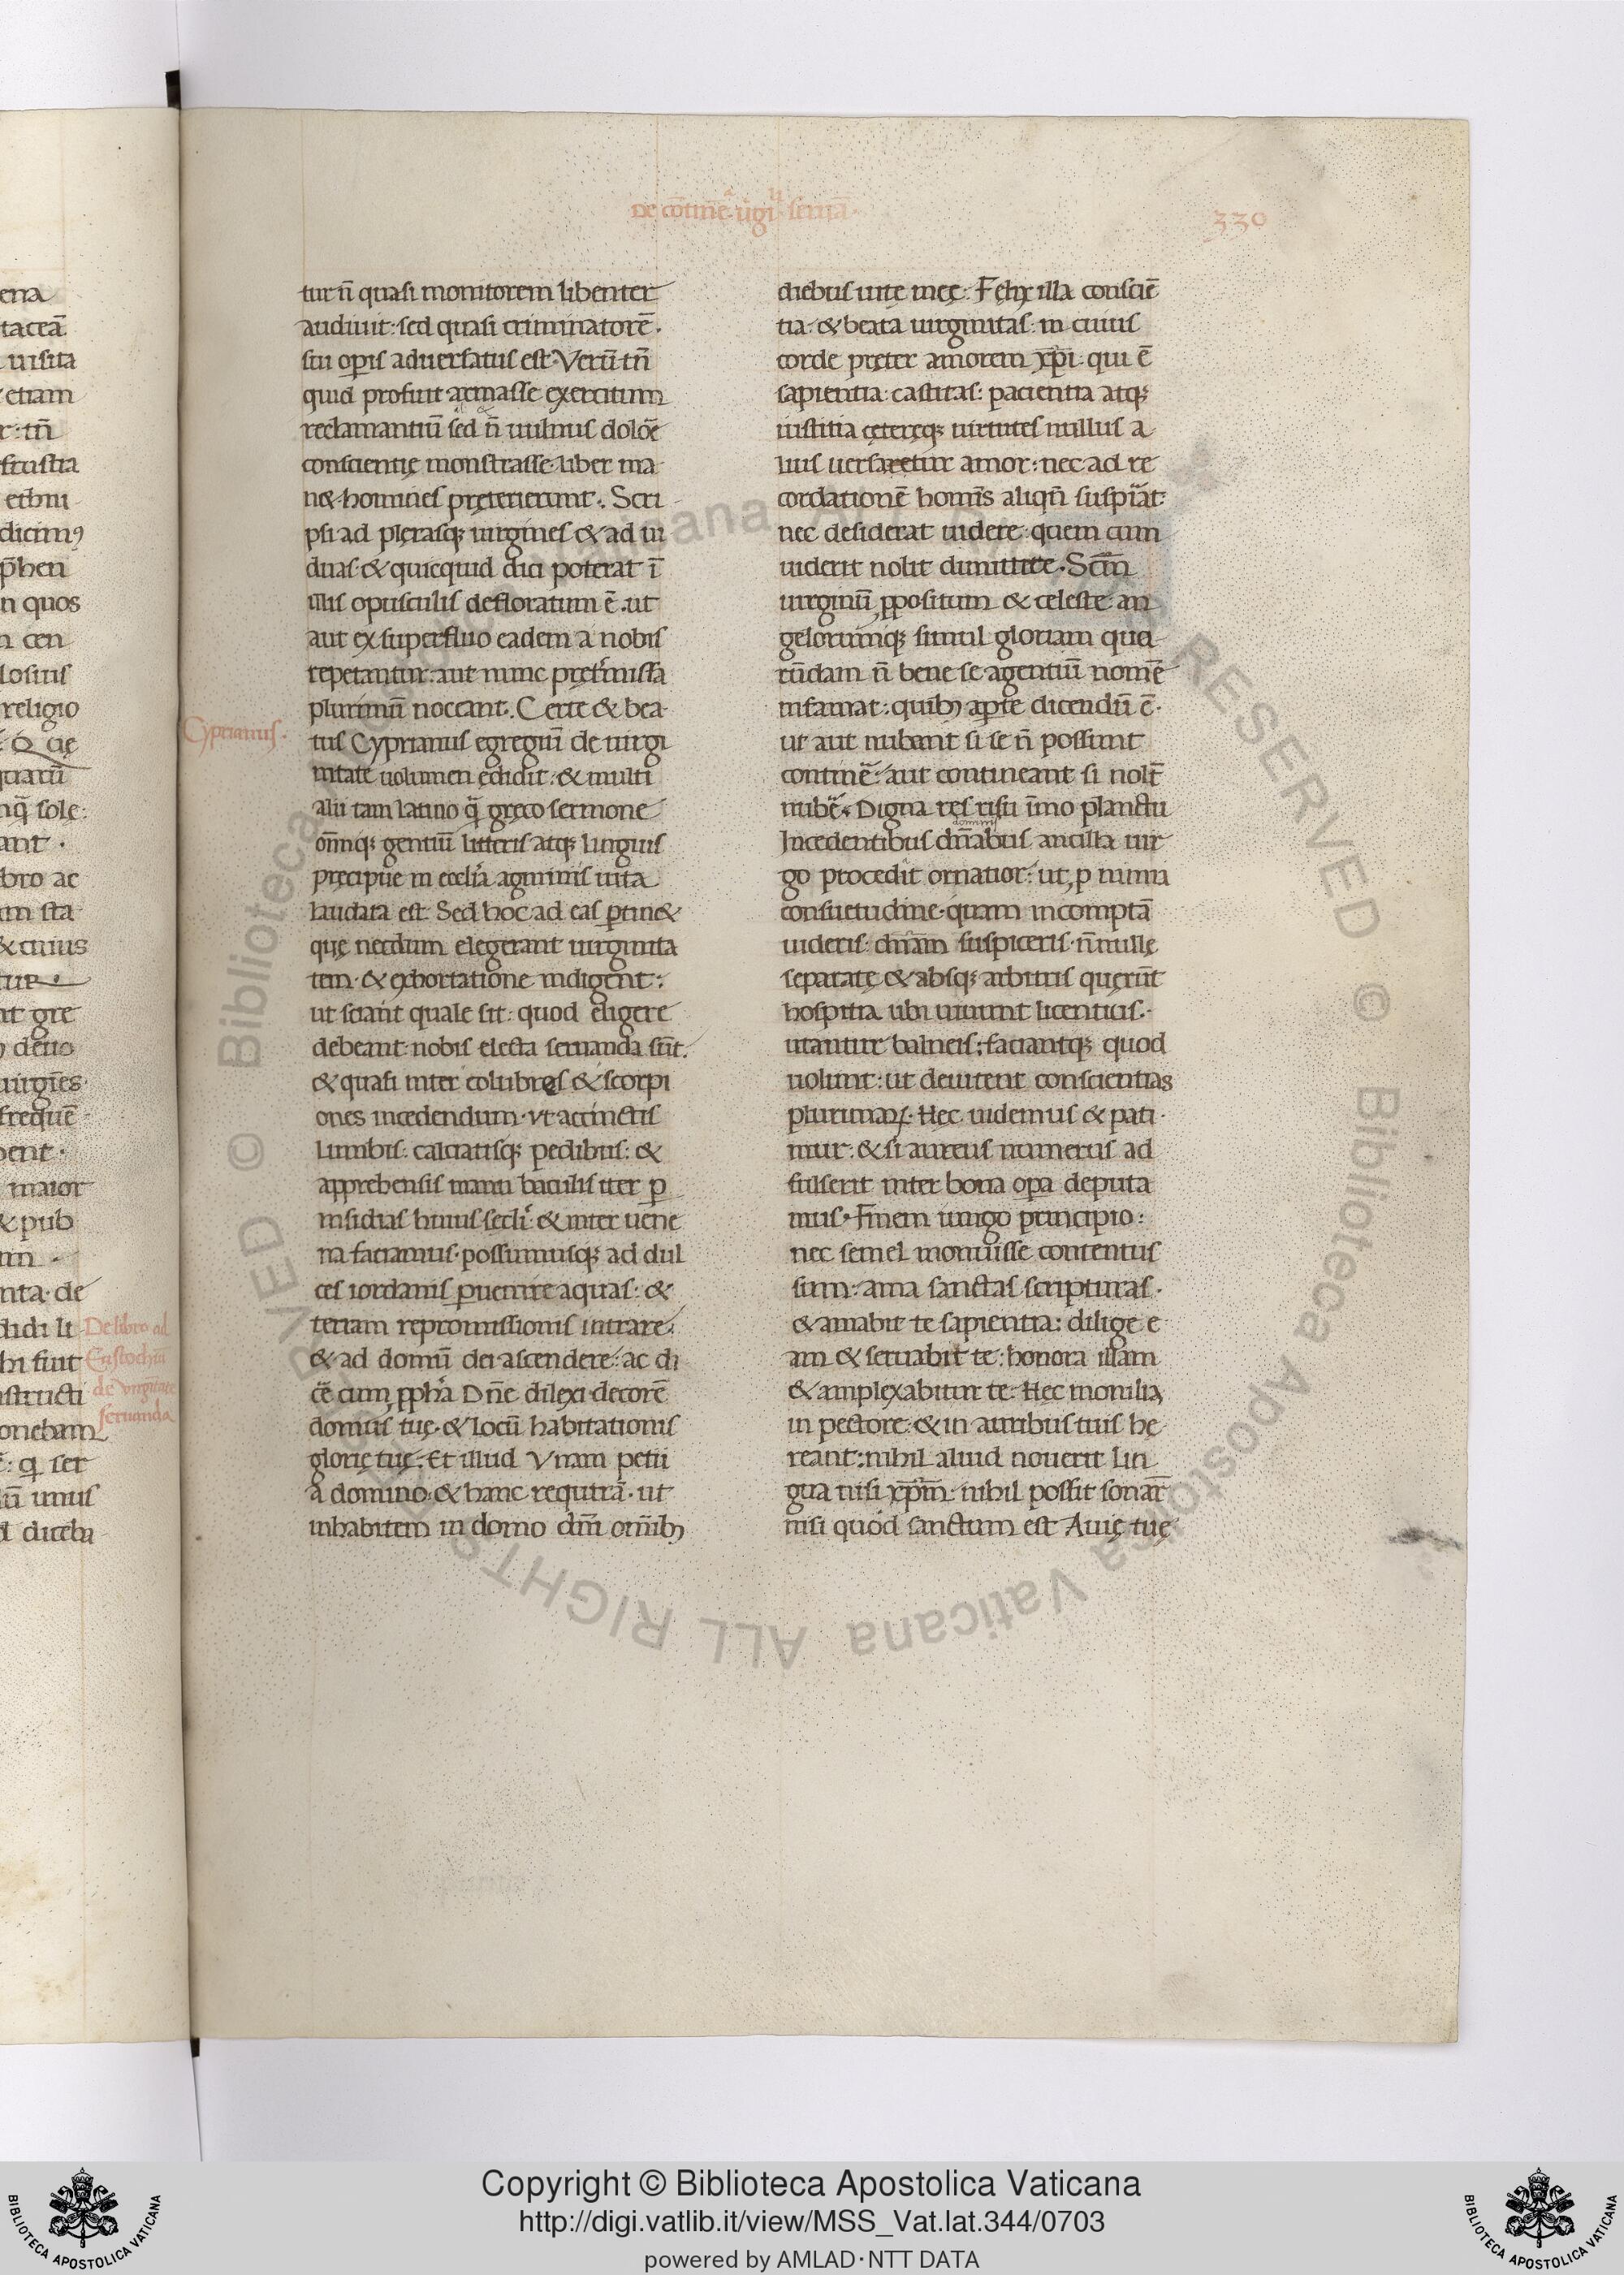 330
tur n̄ quasi monitorem libenter
audiuit: sed quasi criminatorē.
sui operis aduersatus est. Verū tn̄
quid profuit armasse exercitum
reclamantiū sed n̄ uulnus dolōe
conscientię monstrasse. liber ma
n&. homines pręterierunt. Scri
psi ad plęrasq; uirgines & ad ui
duas. & quicquid dici poterat ī
illis opusculis defloratum ē. ut
aut ex superfluo eadem a nobis
repetantur: aut nunc prętmissa
plurimū noceant. Certe & bea
Cyprianus.
tus Cyprianus egregiū de uirgi
nitate uolumen ędidit: & multi
alii tam latino q̄ gręco sermone
om̄iq; gentiū litteris atq; linguis
pręcipue in ecclīa agminis uita
laudata est. Sed hoc ad eas ptin&
quę necdum elegerant uirginita
tem. & exhortatione indigent:
ut sciant quale sit: quod eligere
debeant. nobis electa seruanda sūt.
& quasi inter colubros & scorpi
ones incedendum. vt accinctis
lumbis: calciatisq; pedibus: &
apprehensis manu baculis iter p
insidias huius sēcli: & inter uene
na faciamus. possimusq; ad dul
ces iordanis puenire aquas: &
terram repromissionis intrare.
& ad domū dei ascendere: ac di
cē cum, pphā Dn̄e dilexi decorē
domus tuę. & locū habitationis
glorię tuę. Et illud Vnam petii
a domino. & hanc requirā. ut
inhabitem in domo dn̄i om̄ib;
diebus uitę meę. Felix illa consciē
tia. & beata uirginitas: in cuius
corde pręter amorem xp̄i. qui ē
sapientia. castitas: pacientia atq;
iustitia cętereq; uirtutes nullus a
lius uersaretur amor: nec ad re
cordationē hominis aliqn̄ suspirat
nec desiderat uidere: quem cum
uiderit nolit dimittere. Scām
uirginū, ppositum & celeste. an
gelorumq; simul gloriam qua
rūdam n̄ bene se agentiū nomē
infamat: quib; aperte dicendū ē.
ut aut nubant si se n̄ possunt
continē: aut contineant si nolt̄
nubē. Digna res risu īmo planctu
dominis
Incedentibus dn̄abus ancilla uir
go procedit ornatior: ut, p nimia
consuetudine. quam incomptā
uideris: dn̄am suspiceris. n̄nullę
separatę & absq; arbitris quęrūt
hospitia ubi uiuant licentius.
utantur balneis; faciantq; quod
uolunt: ut deuitent conscientias
plurimaꝝ. Hęc uidemus & pati
mur: & si aureus numerus ad
fulserit inter bona opa deputa
mus. Finem iungo principio:
nec semel monuisse contentus
sum: ama sanctas scripturas.
& amabit te sapientia: dilige e
am & seruabit te: honora illam
& amplexabitur te. Hęc monilia
in pectore. & in auribus tuis hę
reant: nihil aliud nouerit lin
gua nisi xp̄m: nihil possit sonar̄
nisi quod sanctum est. Auię tuę
ena
taceā
uisita
etiam
r: tn̄
n quos
n cen
religio
ant.
bro ac
m sta
& cuius
nt gre
uirgīes
frequē
maior
& pub
nta. de
didi li
De libro ad
hi fuit
Eustochiā
structi
de virginitate
onebam
seruanda
unus
diceba
© Biblioteca Apostolica Vaticana ALL RIGHTS RESERVED © Biblioteca Apostolica Vaticana ALL RIGHTS RESERVED
Copyright © Biblioteca Apostolica Vaticana
http://digi.vatlib.it/view/MSS_Vat.lat.344/0703
powered by AMLAD·NTT DATA
BIBLIOTECA APOSTOLICA VATICANA
BIBLIOTECA APOSTOLICA VATICANA